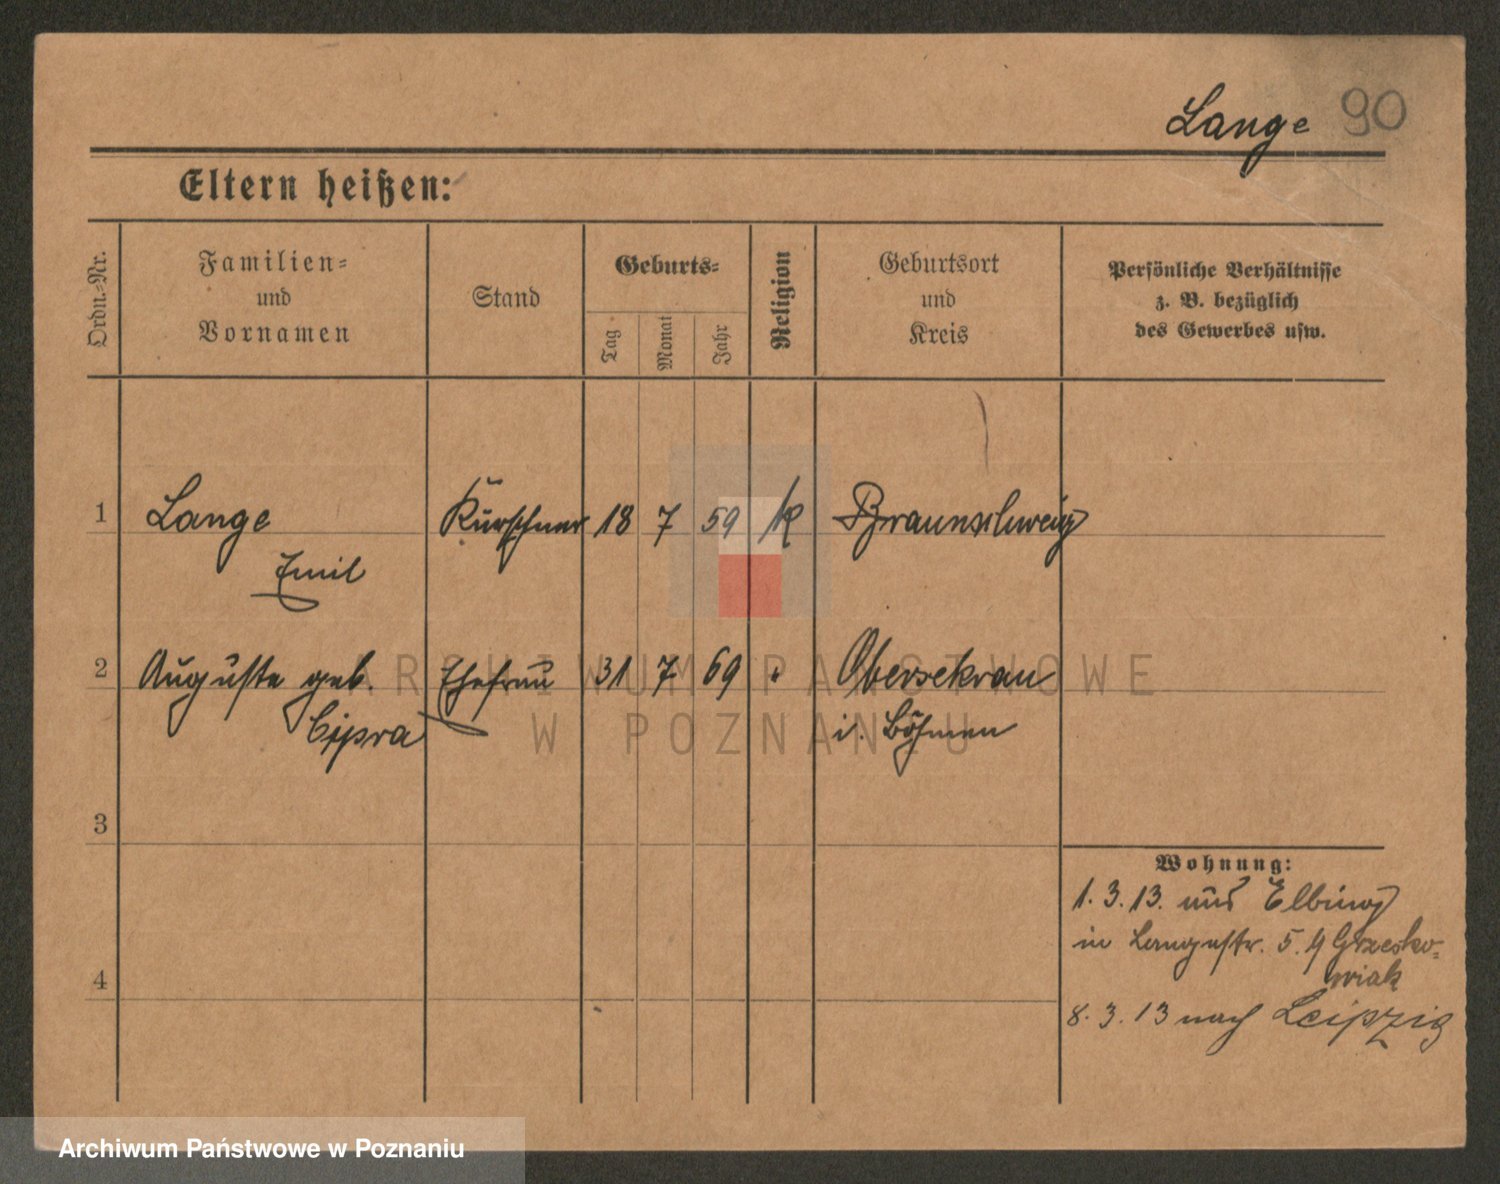 Lange 90
Eltern heißen:
Ordn.-Nr.
Familien-
und
Vornamen
Stand
Geburts-
Tag
Monat
Jahr
Religion
Geburtsort
und
Kreis
Persönliche Verhältnisse
z. B. bezüglich
des Gewerbes usw.
1 Lange Kürschner 18 7 59 k Braunschweig
Emil
2 Auguste geb. Ehefrau 31 7 69 " Obersekrau
Cipra i. Böhmen
3
4
Wohnung:
1. 3. 13. aus Elbing
in Langestr. 5. b/ Grzesko-
wiak
8. 3. 13 nach Leipzig
ARCHIWUM PAŃSTWOWE
W POZNANIU
Archiwum Państwowe w Poznaniu